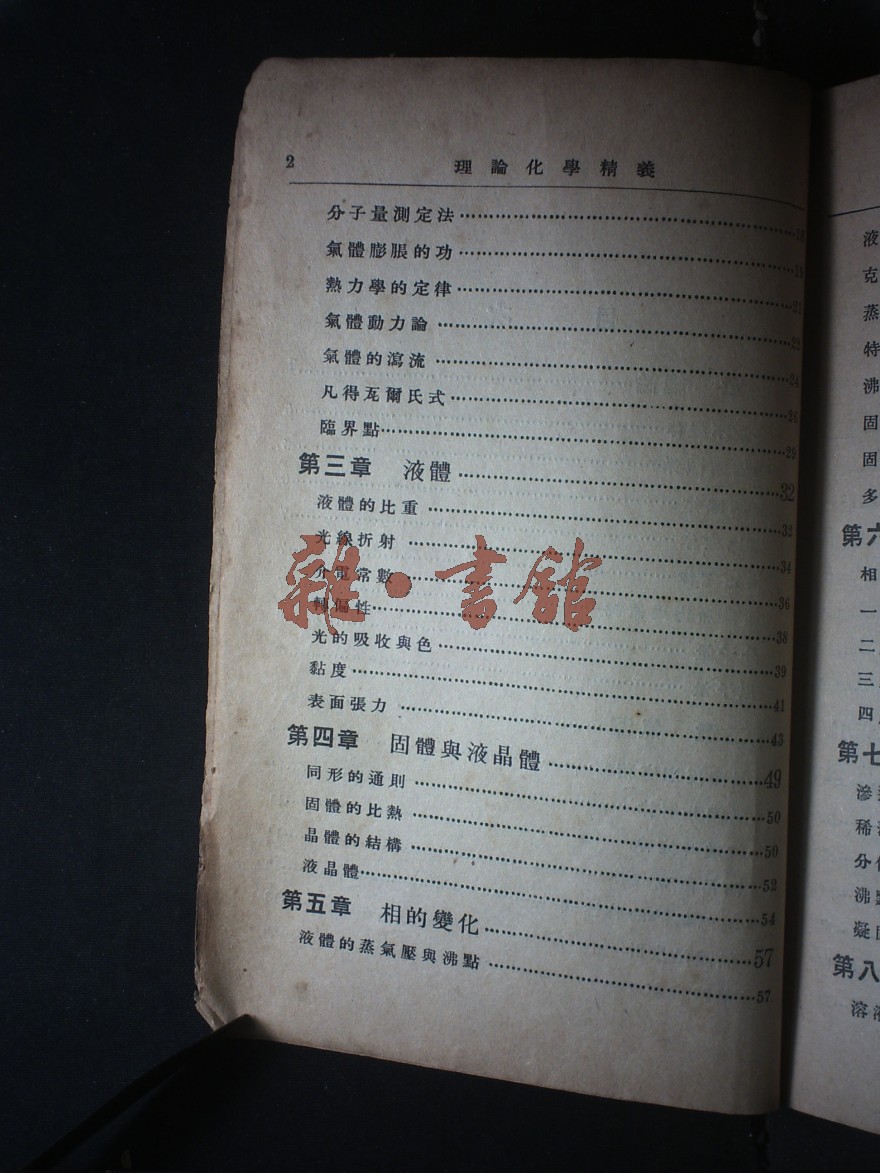 2 理論化學精義
分子量測定法
氣體膨脹的功
熱力學的定律
氣體動力論 22
氣體的瀉流 24
凡得瓦爾氏式 26
臨界點 29
第三章 液體 32
液體的比重 32
光線折射 34
介電常數 36
轉偏性 38
光的吸收與色 39
黏度 41
表面張力 43
第四章 固體與液晶體 49
同形的通則 50
固體的比熱 50
晶體的結構 52
液晶體 54
第五章 相的變化 57
液體的蒸氣壓與沸點 57
雜·書館
液
克
蒸
特
沸
固
固
多
第六
相
一
二
三
四
第七
滲
稀
分
沸
凝
第八
溶